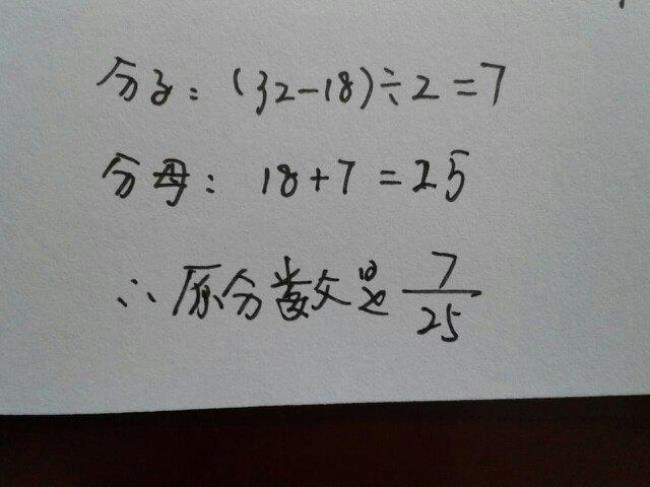 分子：(32-18)÷2=7
分母：18+7=25
∴原分数是 7/25